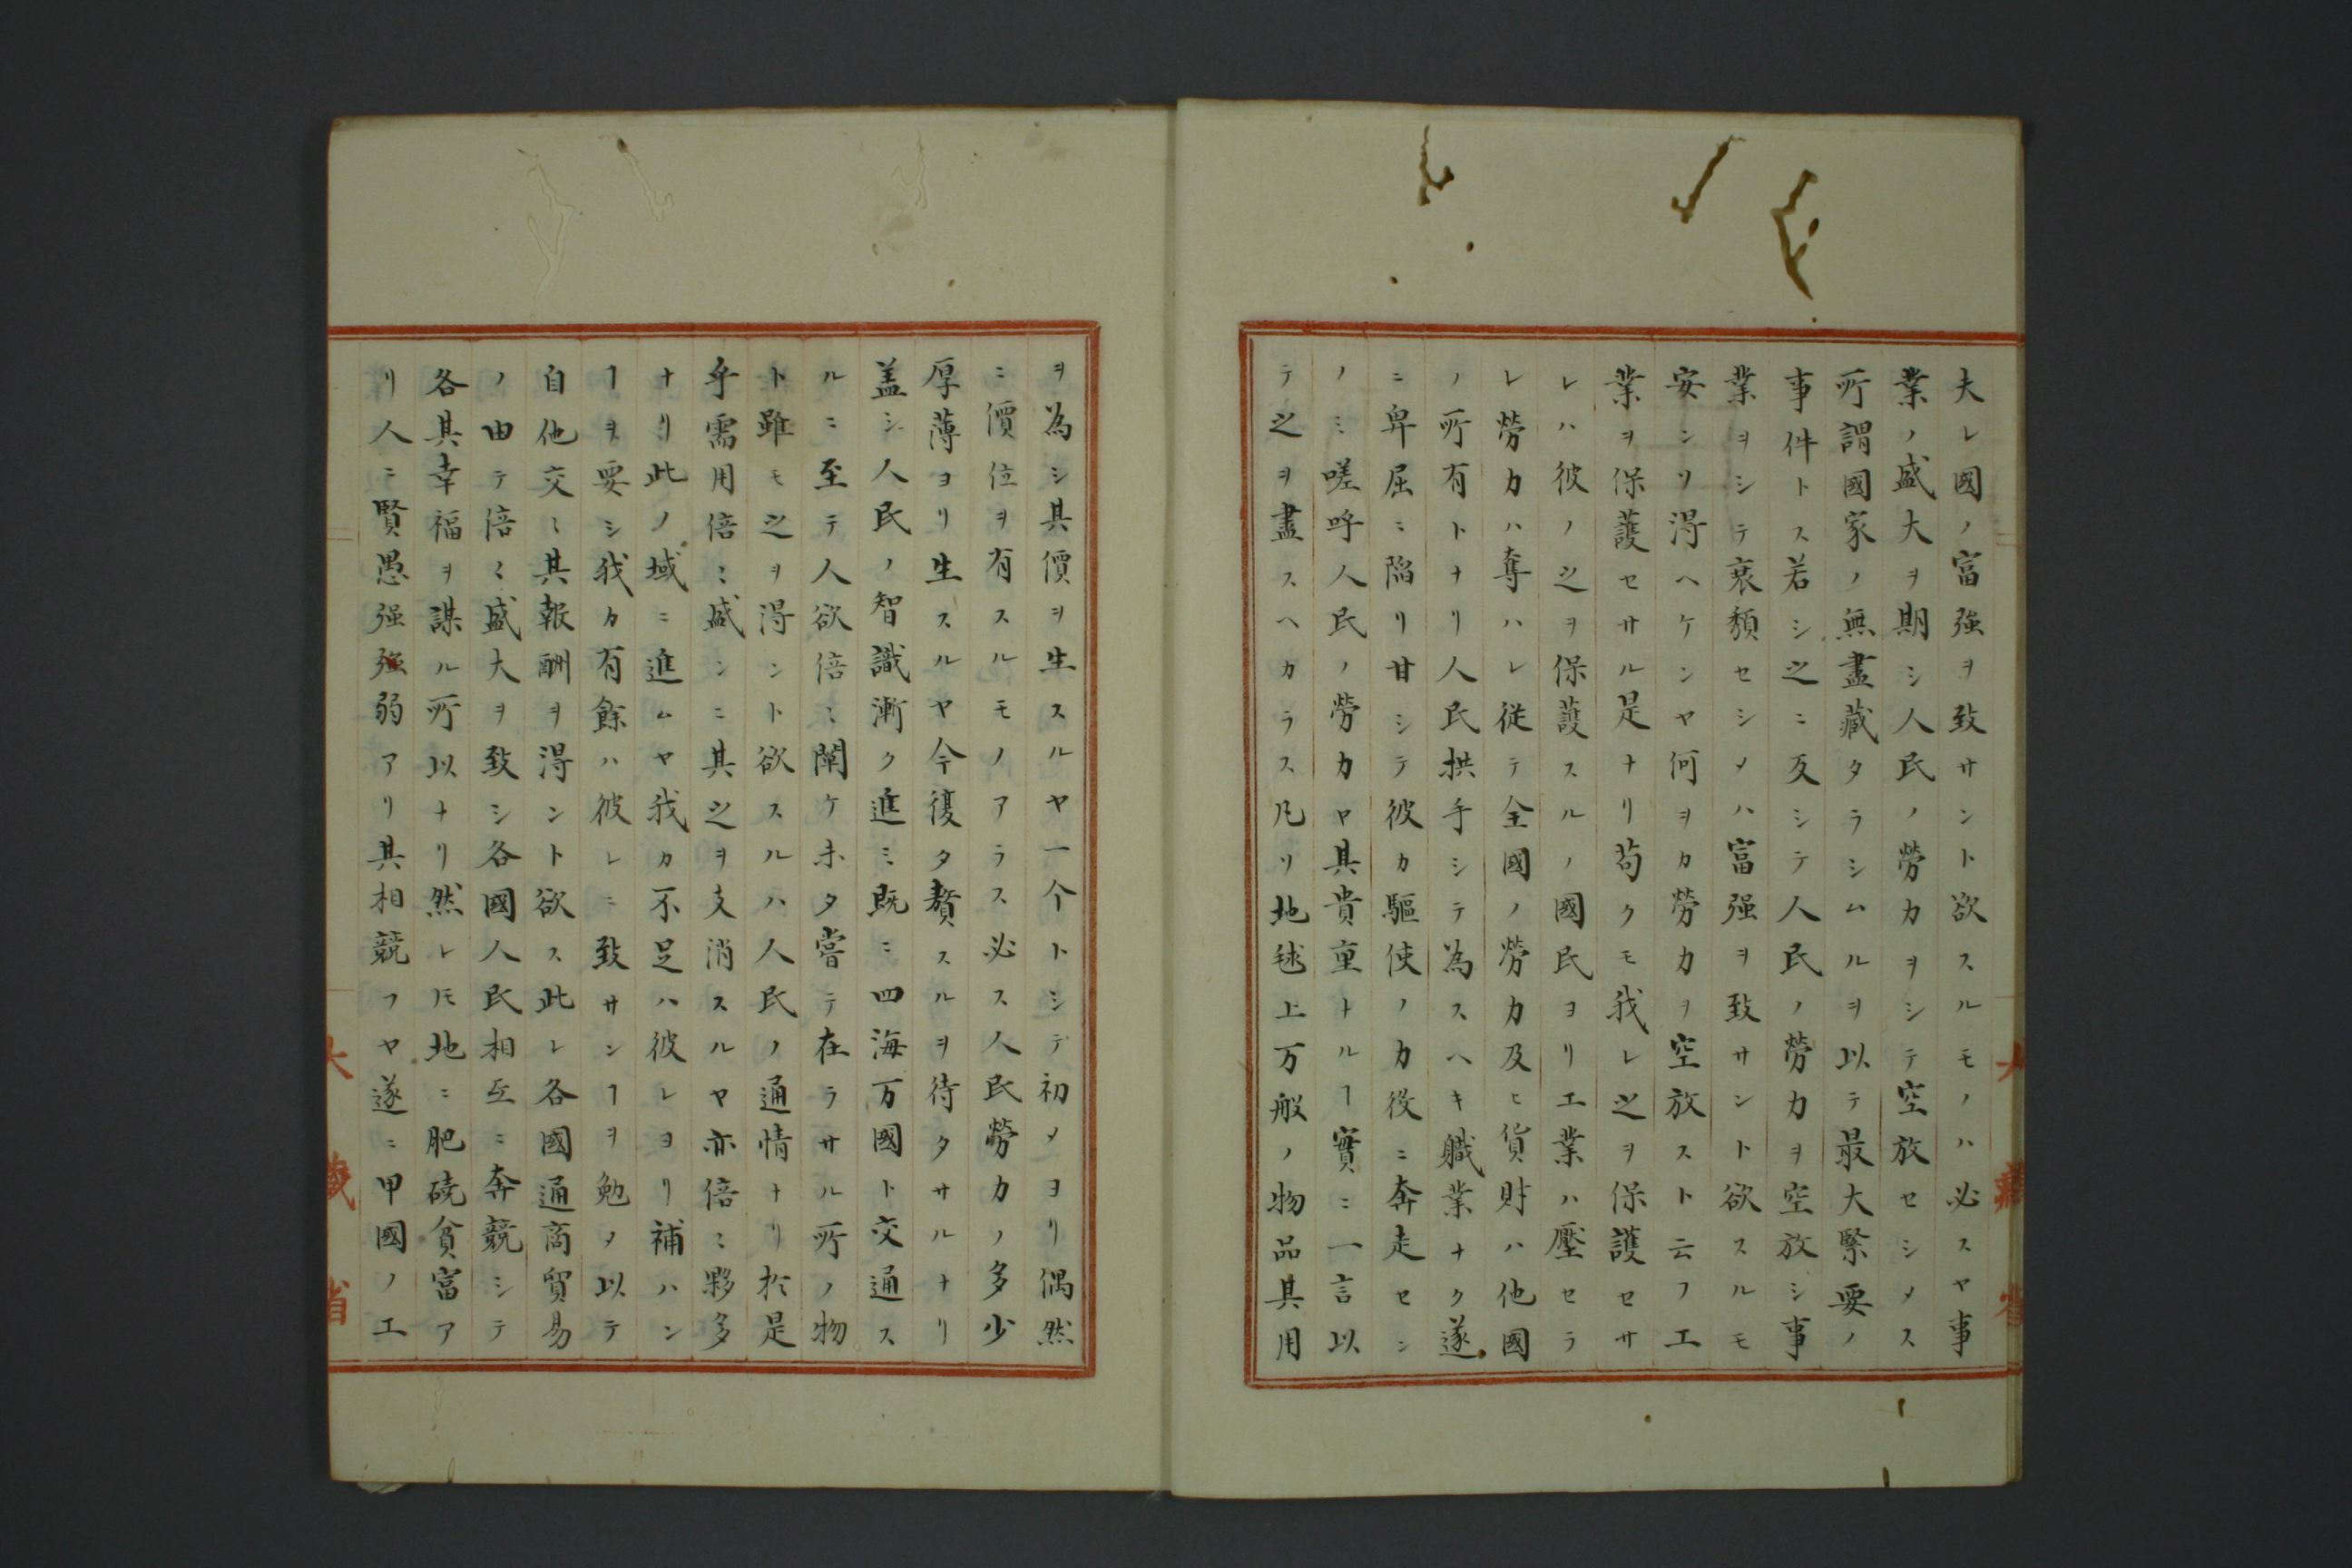 夫レ國ノ富强ヲ致サント欲スルモノハ必スヤ事
業ノ盛大ヲ期シ人民ノ勞力ヲシテ空放セシメス
所謂國家ノ無盡藏タラシムルヲ以テ最大緊要ノ
事件トス若シ之ニ反シテ人民ノ勞力ヲ空放シ事
業ヲシテ衰頽セシメハ富强ヲ致サント欲スルモ
安ンソ得ヘケンヤ何ヲカ勞力ヲ空放スト云フ工
業ヲ保護セサル是ナリ苟クモ我レ之ヲ保護セサ
レハ彼ノ之ヲ保護スルノ國民ヨリ工業ハ壓セラ
レ勞力ハ奪ハレ従テ全國ノ勞力及ヒ貨財ハ他國
ノ所有トナリ人民拱手シテ為スヘキ職業ナク遂
ニ卑屈ニ陷リ甘シテ彼カ驅使ノ力役ニ奔走セン
ノミ嗟呼人民ノ勞力ヤ其貴重トルヿ實ニ一言以
テ之ヲ盡スヘカラス凡ソ地毬上万般ノ物品其用
ヲ為シ其價ヲ生スルヤ一个トシテ初メヨリ偶然
ニ價位ヲ有スルモノアラス必ス人民勞力ノ多少
厚薄ヨリ生スルヤ今復タ贅スルヲ待タサルナリ
盖シ人民ノ智識漸ク進ミ既ニ四海万國ト交通ス
ルニ至テ人欲倍〻闡ケ未タ嘗テ在ラサル所ノ物
ト雖モ之ヲ得ント欲スルハ人民ノ通情ナリ於是
乎需用倍〻盛ンニ其之ヲ支消スルヤ亦倍〻夥多
ナリ此ノ域ニ進ムヤ我カ不足ハ彼レヨリ補ハン
ヿヲ要シ我カ有餘ハ彼レニ致サンヿヲ勉メ以テ
自他交〻其報酬ヲ得ント欲ス此レ各國通商貿易
ノ由テ倍〻盛大ヲ致シ各國人民相互ニ奔競シテ
各其幸福ヲ謀ル所以ナリ然レ𪜈地ニ肥磽貧富ア
リ人ニ賢愚强强弱アリ其相競フヤ遂ニ甲國ノ工
大藏省